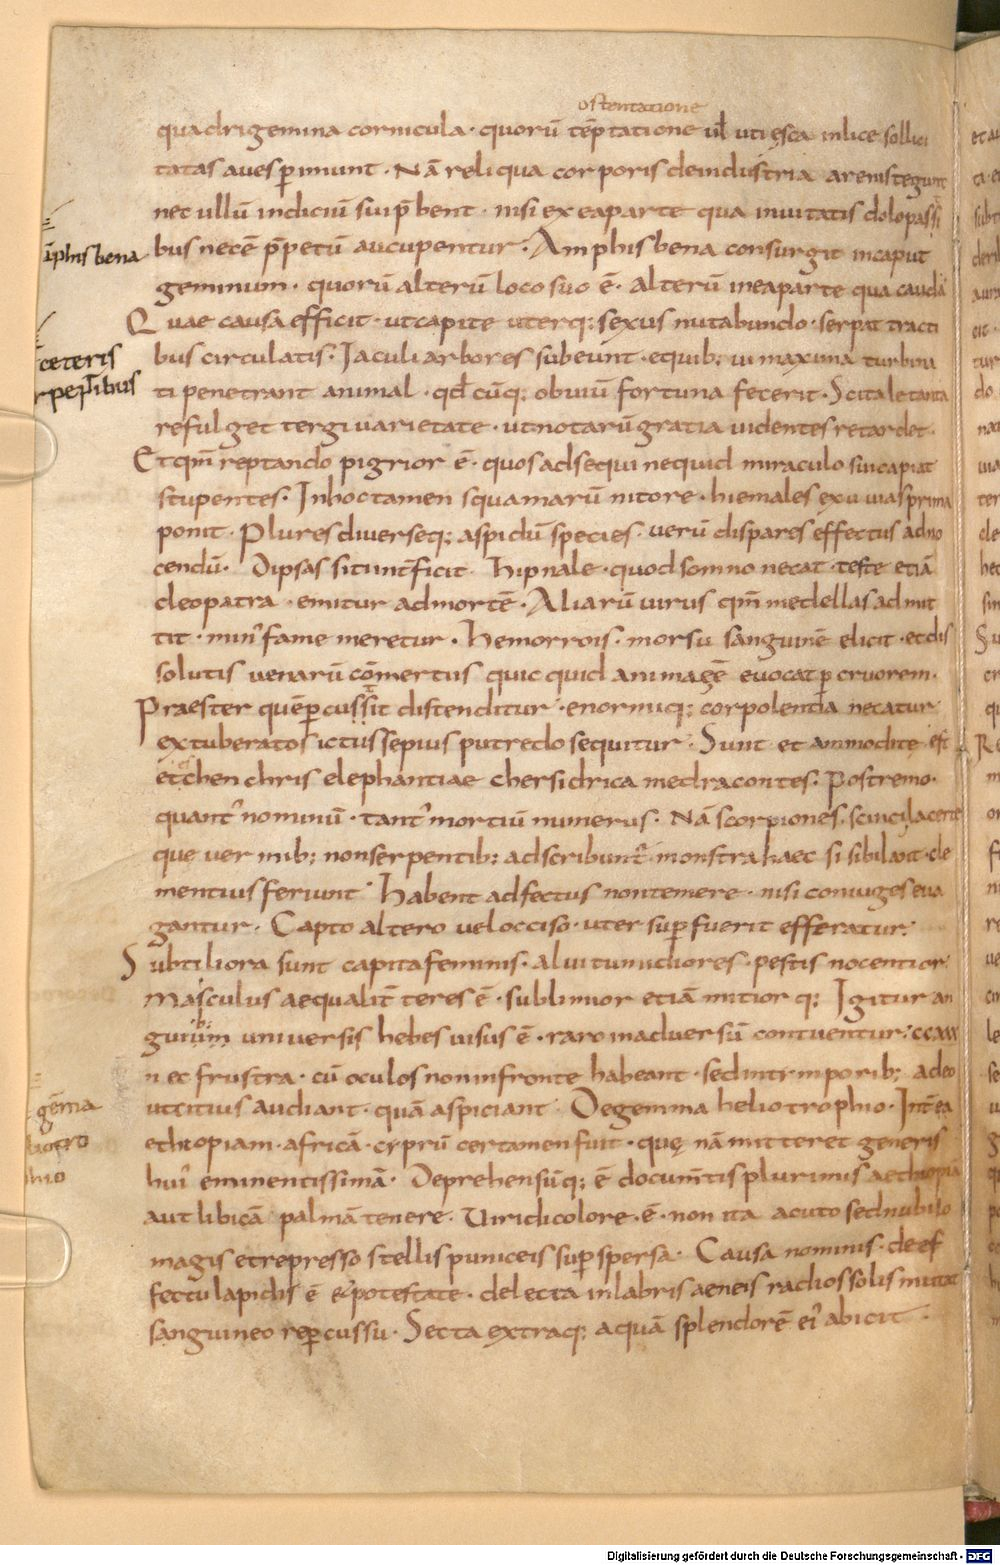 ostentatione
quadrigemina cornicula · quorū tēptatione uł uti ęsca inlice sollici
tatas aues ꝑimunt · Nā reliqua corporis deindustria arenis tegunt
nec ullū indiciū sui p̄bent · nisi ex eaparte qua inuitatis dolo passi
bus necē p̄petū aucupentur · Amphisbena consurgit incaput
āphisbena
geminum · quorū alterū loco suo ē · alterū ineaparte qua cauda
Quae causa efficit · ut capite uterq; sexus nutabundo · serpat tracti
bus circulatis · Iaculi arbores subeunt · equib; ui maxima turbina
ceteris
rpentibus
ti penetrant animal · qd̄ cūq; obuiū fortuna fecerit · Scitale tanta
refulget tergi uarietate · ut notarū gratia uidentes retardet ·
Et qm̄ reptando pigrior ē · quos adsequi nequid miraculo sui capiat
stupentes · Inhoc tamen squamarū nitore · hiemales exuuias prima
ponit · Plures diuerseq; aspidū species · uerū dispares effectus adno
cendū · Dipsas siti int̄ficit · hipnale · quod somno necat · teste etiā
cleopatra · emitur admortē · Aliarū uirus qm̄ medellas admit
tit · min' fame meretur · hemorrois · morsu sanguinē elicit · et dis
solutis uenarū cōmertus quicquid animagē euocat ꝑ cruorem ·
Praester quē ꝑcussit distenditur · enormiq; corpolentia necatur
extuberatos ictus sepius putredo sequitur · Sunt et ammodite est
et chenchris elephantiae chersidrica medracontes · Postremo ·
quant' nominū · tant' mortiū numerus · Nā scorpiones scinci lacerte
que uermib; nonserpentib; adscribunt' monstra haec si sibilant · cle
mentius feriunt · habent adfectus nontemere · nisi coniuges eua
gantur · Capto altero uel occiso · uter suꝑfuerit efferatur ·
Subtiliora sunt capita feminis · alui tumidiores · pestis nocentior
Masculus aequalit̄ teres ē · sublimior etiā mitior q; Igitur an
guium uniuersis hebes uisus ē · raro inaduersū contuentur · ccxxx
nec frustra · cū oculos noninfronte habeant · sed intimporib; adeo
ut citius audiant · quā aspiciant Degemma heliotrophio · Int̄ ea
gēma
ethiopiam · africā · cyprū certamen fuit · quę nā mitteret generis
hui' eminentissimā · Deprehensūq; ē documtis plurimis aethiopiā
aut libicā palmā tenere · Uiridi colore · ē · non ita acuto sed nubilo
magis et represso stellis puniceis suꝑspersa · Causa nominis · de ef
fectu lapidis ē & potestate · deiecta inlabris aeneis radios solis mutat
sanguineo reꝑcussu · Secta extraq; aquā splendorē ei' abicit ·
Digitalisierung gefördert durch die Deutsche Forschungsgemeinschaft - DFG